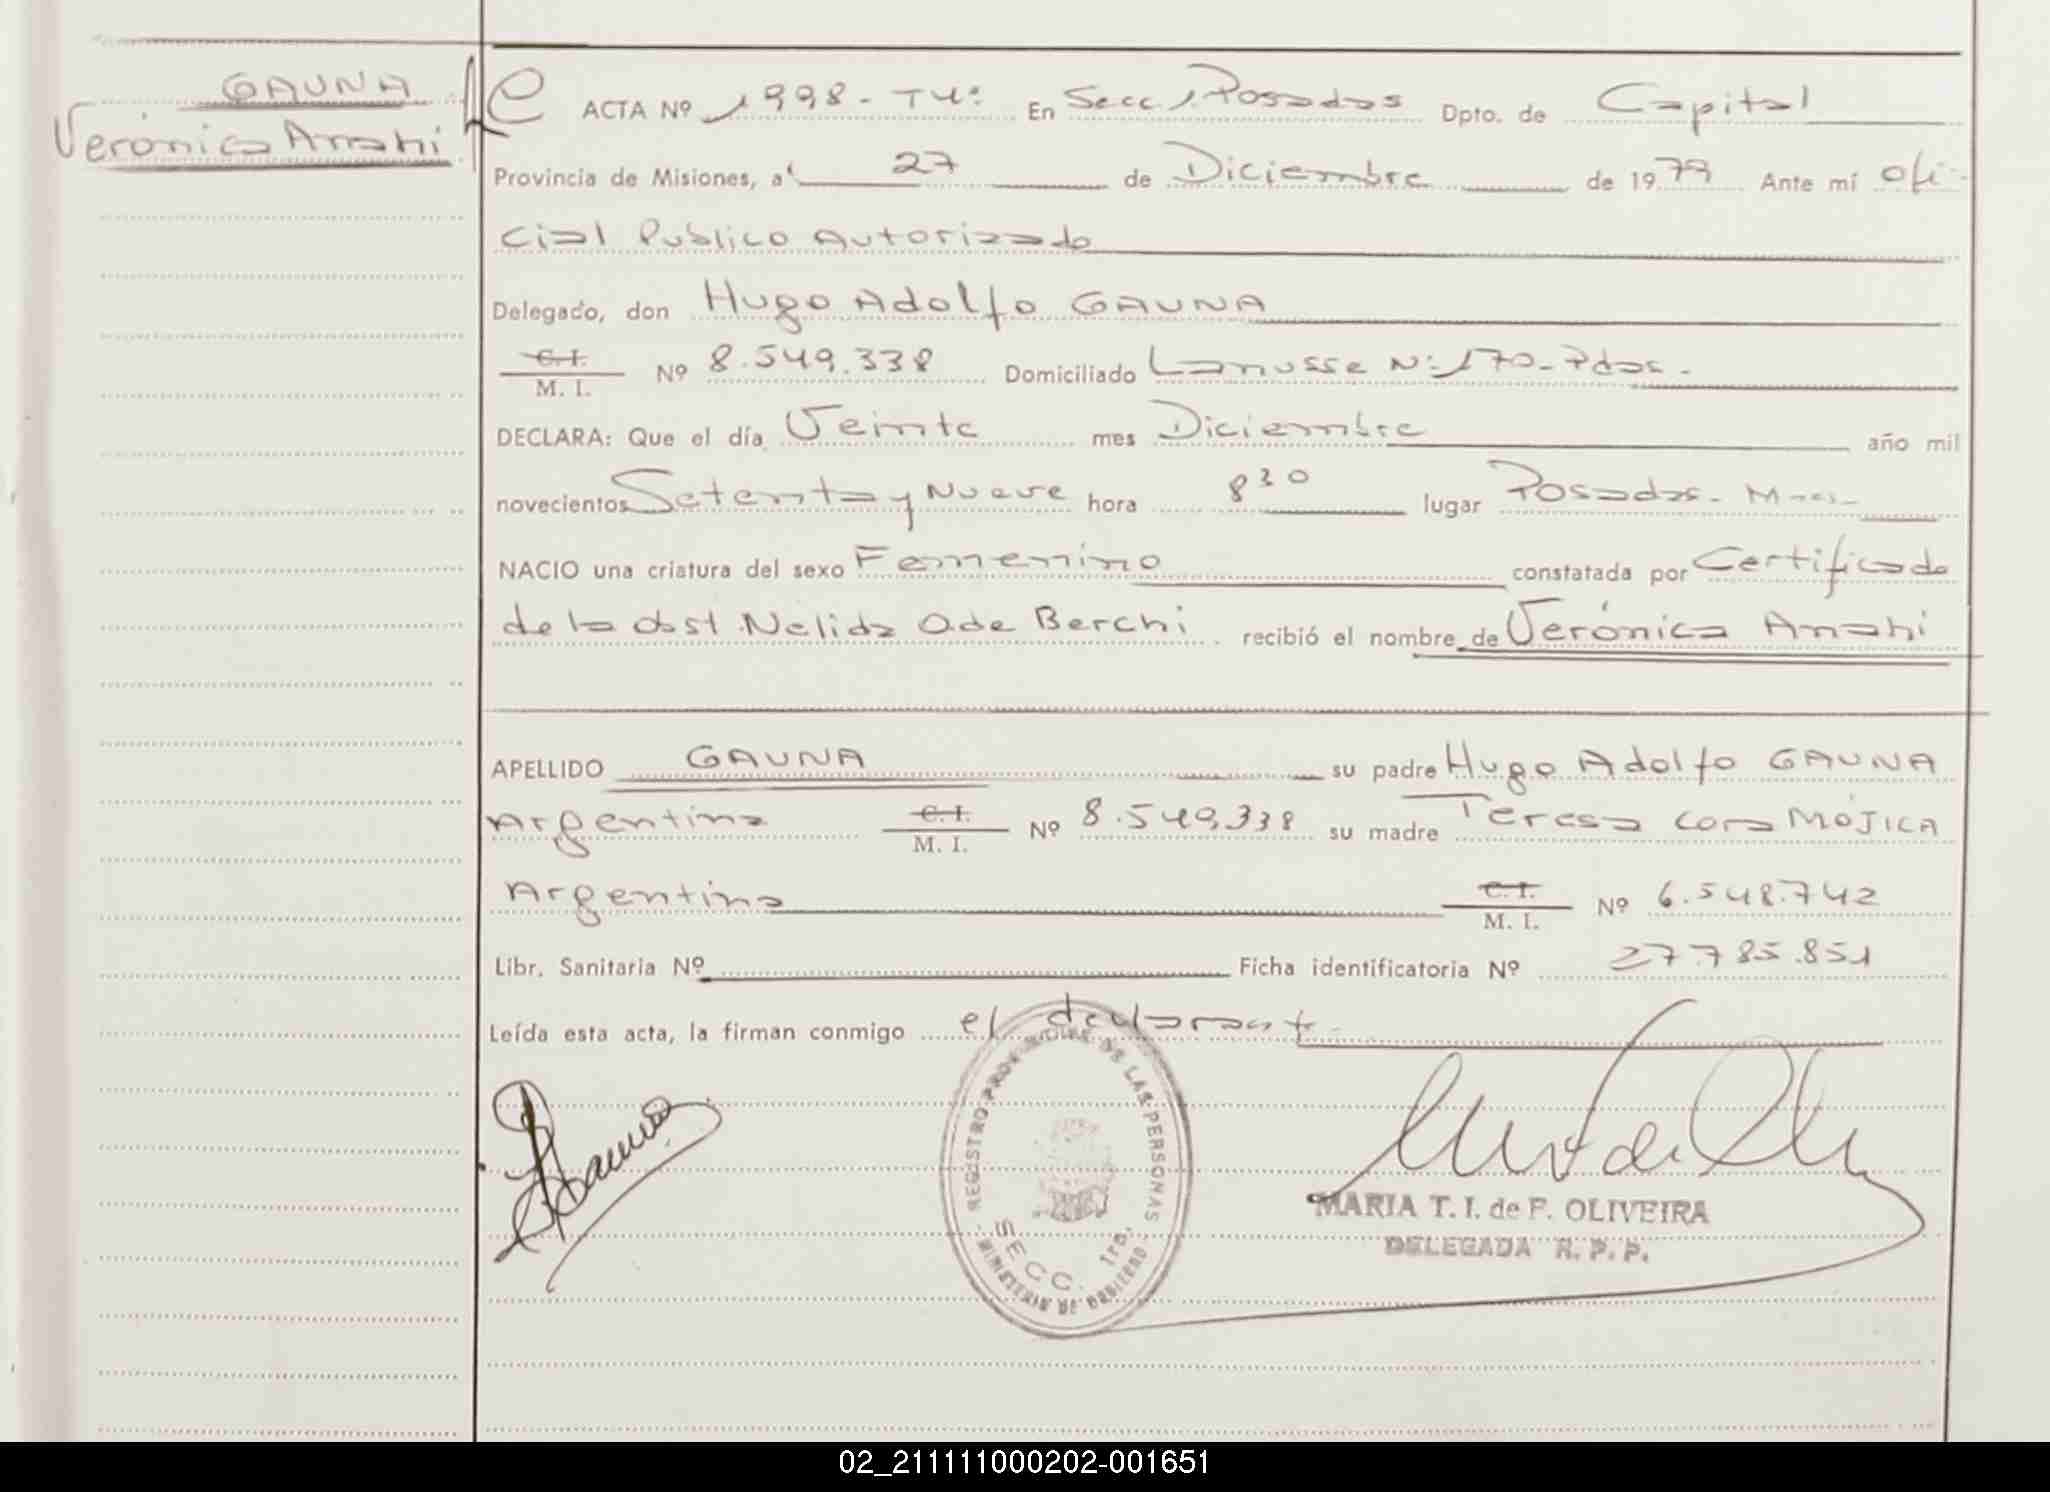 GAUNA
Verónica Anahi
ACTA Nº 1998 - Tº 4º En Secc. 1. Posadas Dpto. de Capital
Provincia de Misiones, a 27 de Diciembre de 1979 Ante mí ofi-
cial Publico Autorizado
Delegado, don Hugo Adolfo GAUNA
C. I.
M. I. Nº 8.549.338 Domiciliado Lanusse Nº 170 - Pdas.-
DECLARA: Que el día Veinte mes Diciembre año mil
novecientos Setenta y Nueve hora 8 30 lugar Posadas - Mnes-
NACIO una criatura del sexo Femenino constatada por Certificado
de la obst Nelida O. de Berchi recibió el nombre de Verónica Anahi
APELLIDO GAUNA su padre Hugo Adolfo GAUNA
Argentina C. I. M. I. Nº 8.549.338 su madre Teresa Cora MOJICA
Argentina C. I. M. I. Nº 6.548.742
Libr. Sanitaria Nº Ficha identificatoria Nº 27.785.851
Leída esta acta, la firman conmigo el declarant.
REGISTRO PROVINCIAL DE LAS PERSONAS
SECC. 1ra.
MINISTERIO DE GOBIERNO
MARIA T. I. de F. OLIVEIRA
DELEGADA R. P. P.
02_211111000202-001651